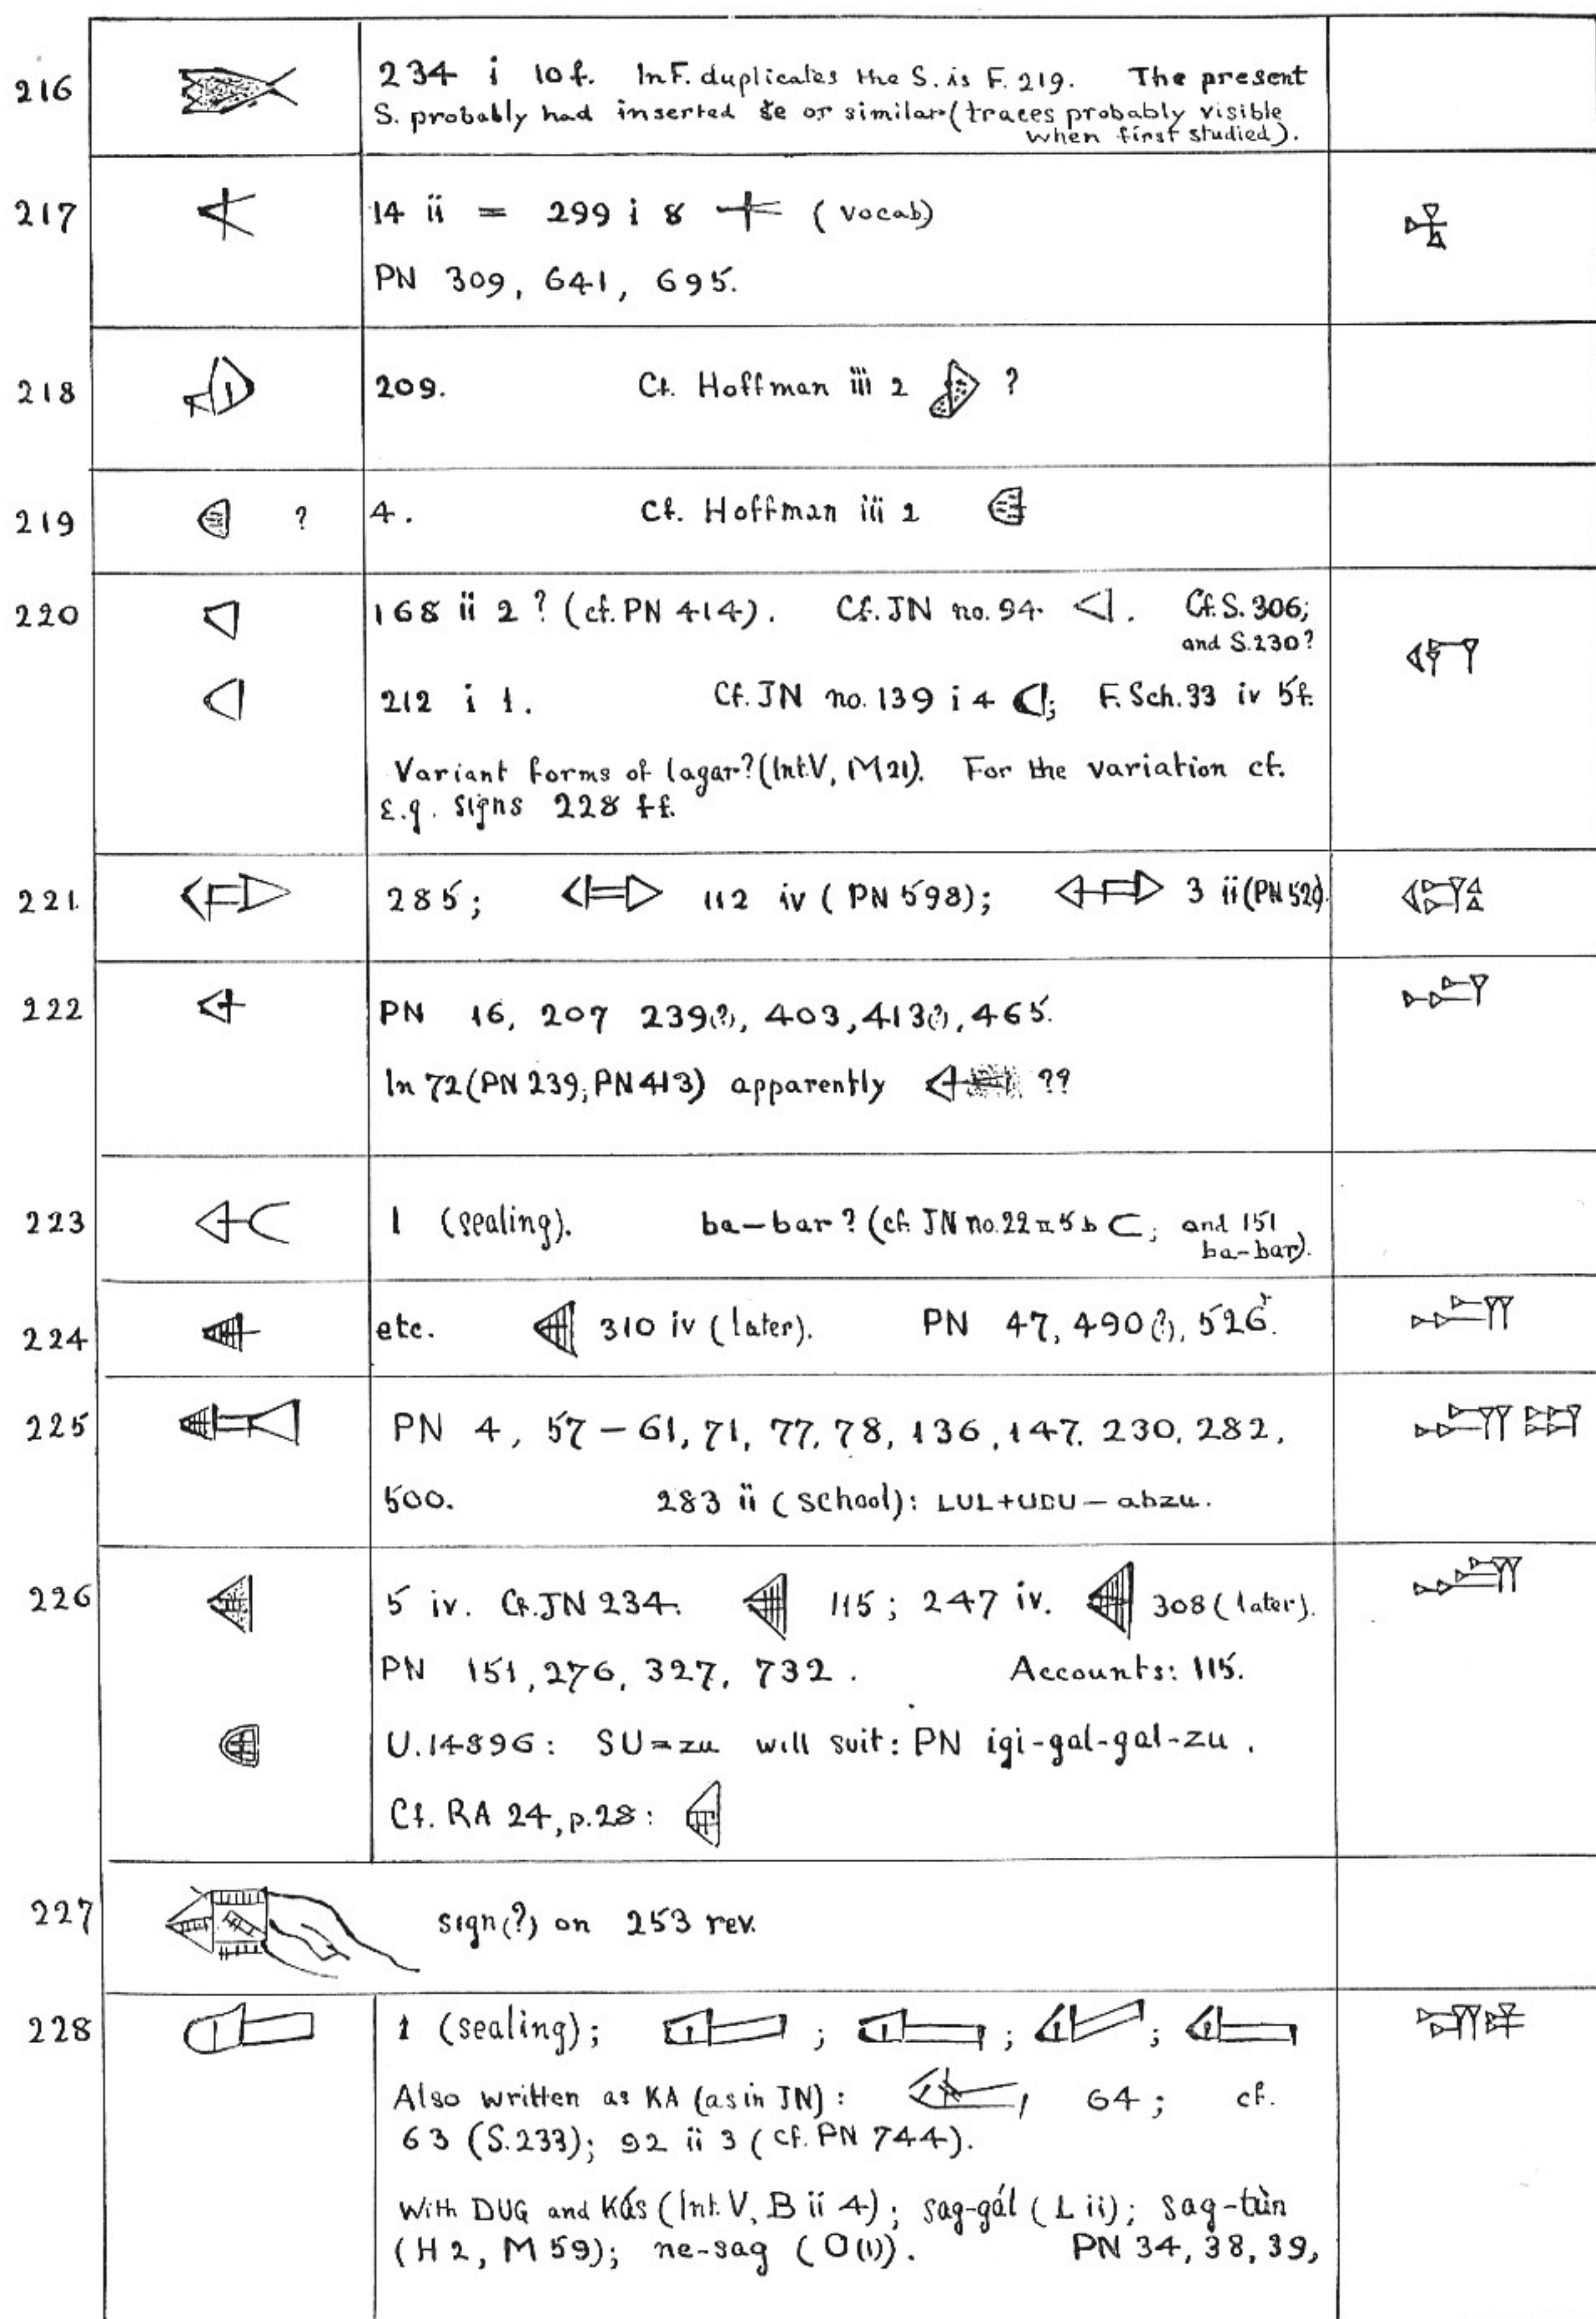 216 234 i 10 f. In F. duplicates the S. is F. 219. The present
S. probably had inserted še or similar (traces probably visible
when first studied).
217 14 ii = 299 i 8 (vocab)
PN 309, 641, 695.
218 209. Cf. Hoffman iii 2 ?
219 ? 4. Cf. Hoffman iii 2
220 168 ii 2 ? (cf. PN 414). Cf. JN no. 94. Cf. S. 306;
and S. 230?
212 i 1. Cf. JN no. 139 i 4 ; F. Sch. 33 iv 5f.
Variant forms of lagar? (Int. V, M 21). For the variation cf.
E.g. signs 228 ff.
221. 285; 112 iv (PN 598); 3 ii (PN 529).
222 PN 16, 207 239(?), 403, 413(?), 465.
In 72 (PN 239, PN 413) apparently ??
223 1 (sealing). ba-bar? (cf. JN no. 22 II 5 b ; and 151
ba-bar).
224 etc. 310 iv (later). PN 47, 490(?), 526.
225 PN 4, 57-61, 71, 77, 78, 136, 147, 230, 282,
500. 283 ii (school): LUL+UDU-abzu.
226 5 iv. Cf. JN 234. 115; 247 iv. 308 (later).
PN 151, 276, 327, 732. Accounts: 115.
U. 14896: SU=zu will suit: PN igi-gal-gal-zu.
Cf. RA 24, p. 28:
227 sign(?) on 253 rev.
228 1 (sealing); ; ; ;
Also written as KA (as in JN): , 64; cf.
63 (S. 233); 92 ii 3 (cf. PN 744).
With DUG and Kás (Int. V, B ii 4); sag-gál (L ii); sag-tùn
(H 2, M 59); ne-sag (O(1)). PN 34, 38, 39,